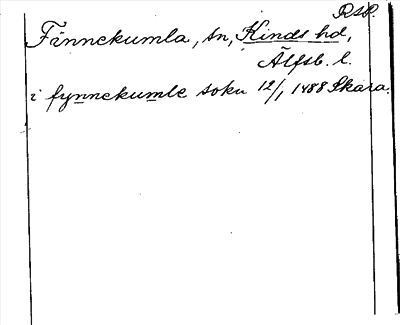 RSP.
Fännekumla, sn, Kinds hd,
Älfsb. l.
i fynnekumle soku 12/1 1488 Skara.